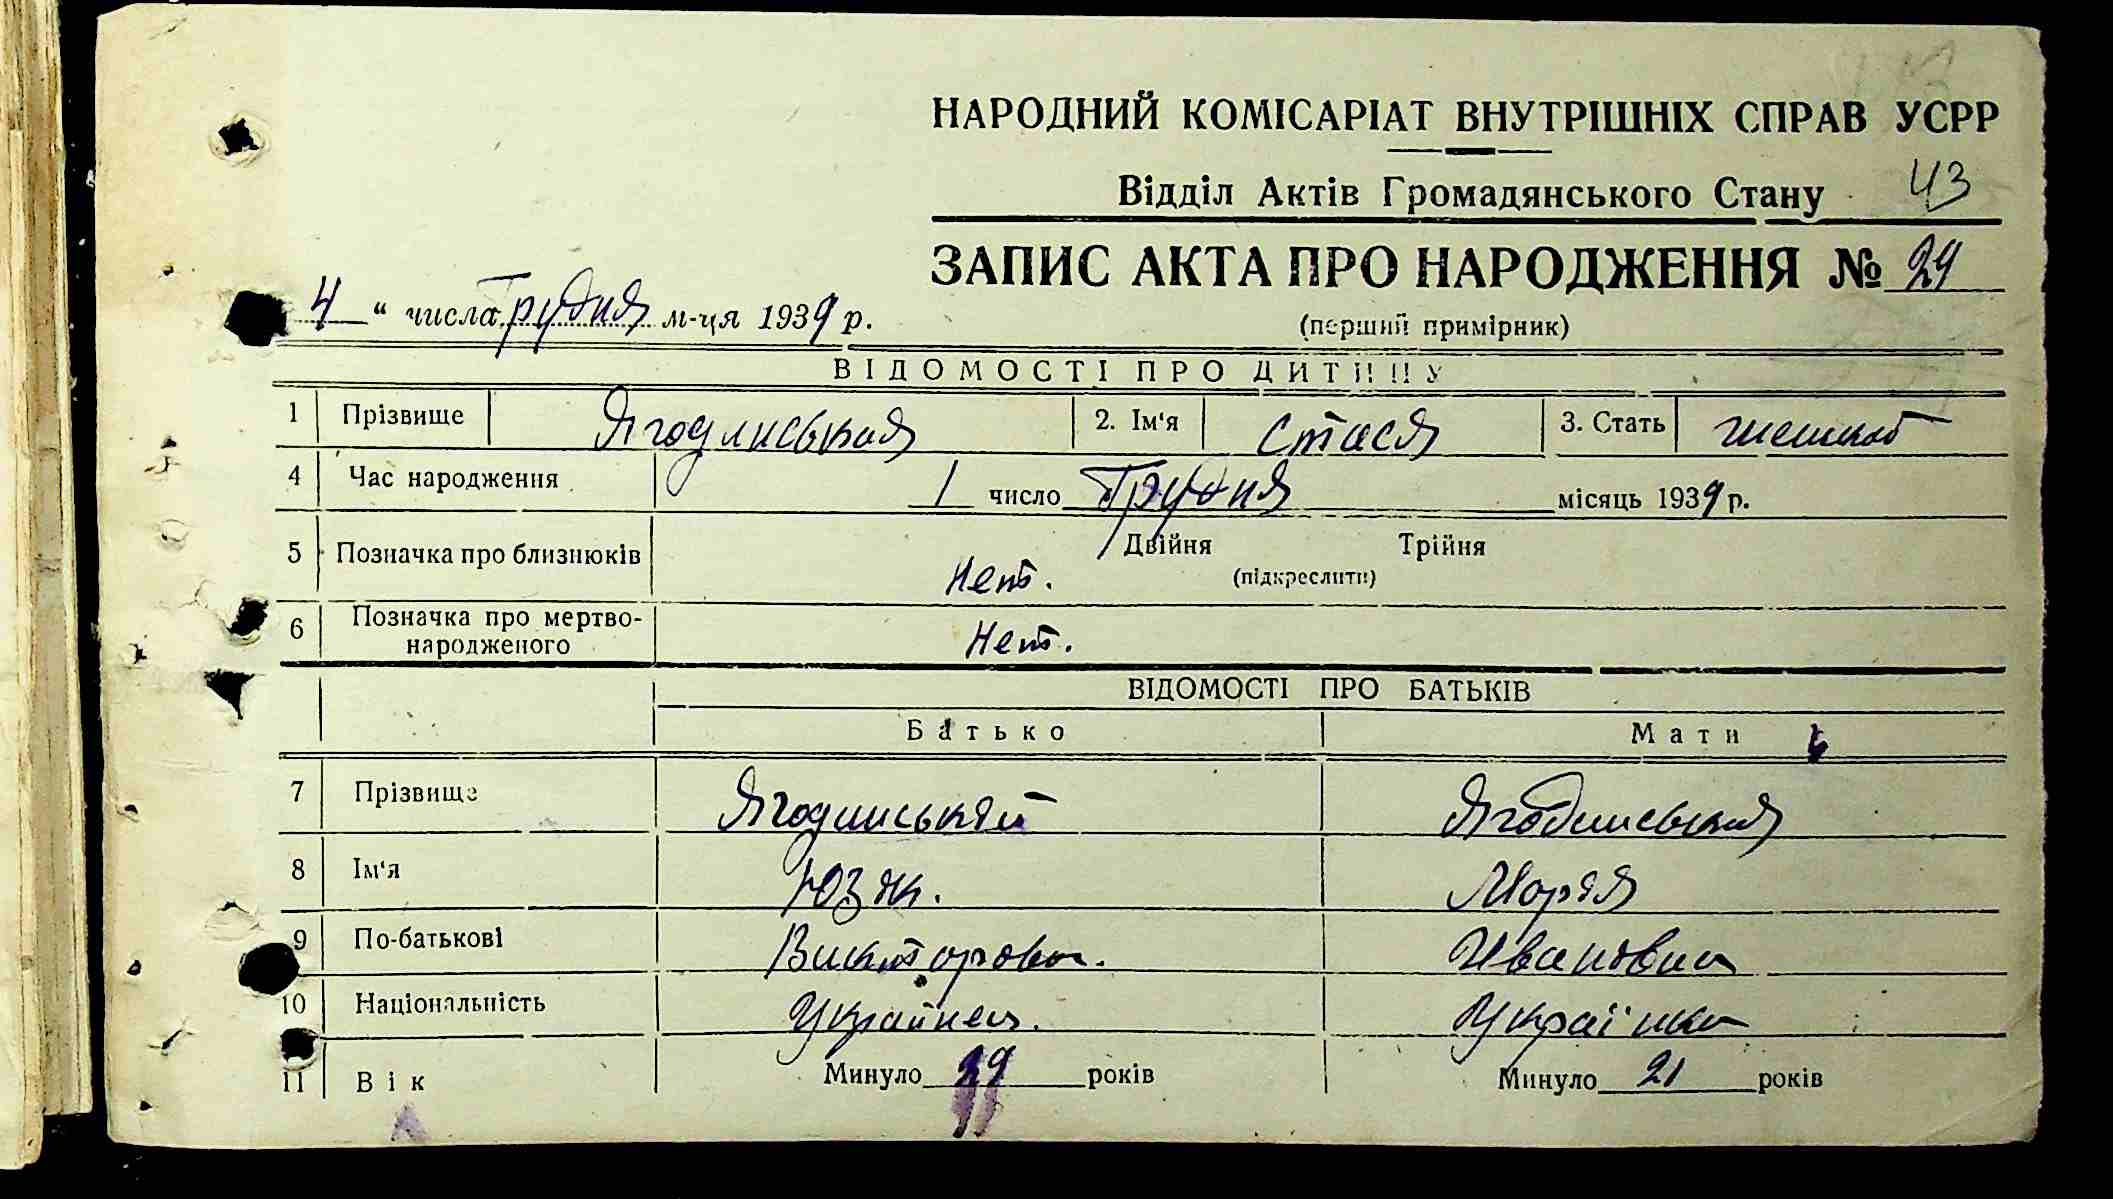 НАРОДНИЙ КОМІСАРІАТ ВНУТРІШНІХ СПРАВ УСРР
Відділ Актів Громадянського Стану 43
ЗАПИС АКТА ПРО НАРОДЖЕННЯ № 29
4 " числа Грудня м-ця 1939 р.
(перший примірник)
ВІДОМОСТІ ПРО ДИТИНУ
1 Прізвище Ягодинськая 2. Ім'я Стася 3. Стать
4 Час народження 1 число Грудня місяць 1939 р.
5 Позначка про близнюків Нет. Двійня Трійня
(підкреслити)
6 Позначка про мертво-
народженого Нет.
ВІДОМОСТІ ПРО БАТЬКІВ
Батько Мати
7 Прізвище Ягодинський Ягодинськая
8 Ім'я Юзяк. Марія
9 По-батькові Викторовч. Ивановна
10 Національність Українец. Українка
11 Вік Минуло 29 років Минуло 21 років